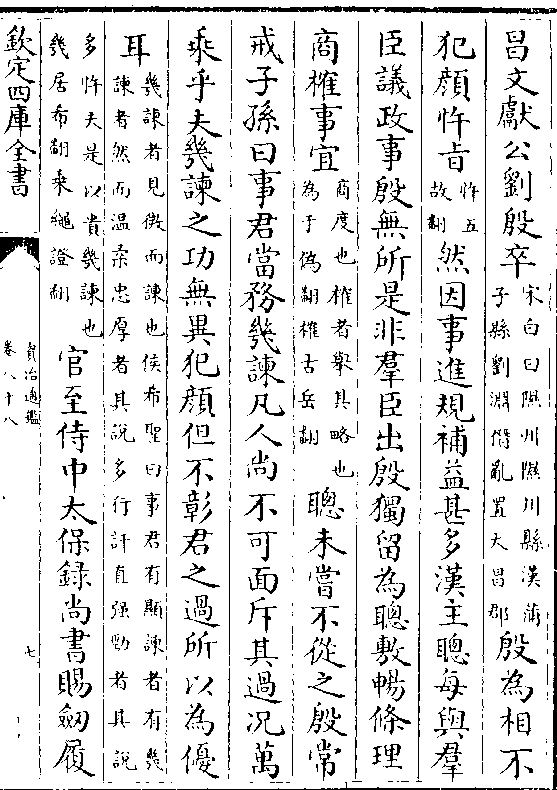 昌文獻公劉殷卒宋白曰隰州隰川縣漢蒲子縣劉淵僭亂置大昌郡殷為相不
犯顔忤旨忤五故翻然因事進規補益甚多漢主聰每與羣
臣議政事殷無所是非羣臣出殷獨留為聰敷暢條理
商榷事宜商度也榷者舉其略也為于偽翻榷古岳翻聰未嘗不從之殷常
戒子孫曰事君當務幾諫凡人尚不可面斥其過况萬
乘乎夫幾諫之功無異犯顔但不彰君之過所以為優
耳幾諫者見微而諫也侯希聖曰事君有顯諫者有幾諫者然而温柔忠厚者其說多行訐直强勁者其說
多忤夫是以貴幾諫也幾居希翻乘繩證翻官至侍中太保錄尚書賜劒履
欽定四庫全書
資治通鑑
卷八十八
七